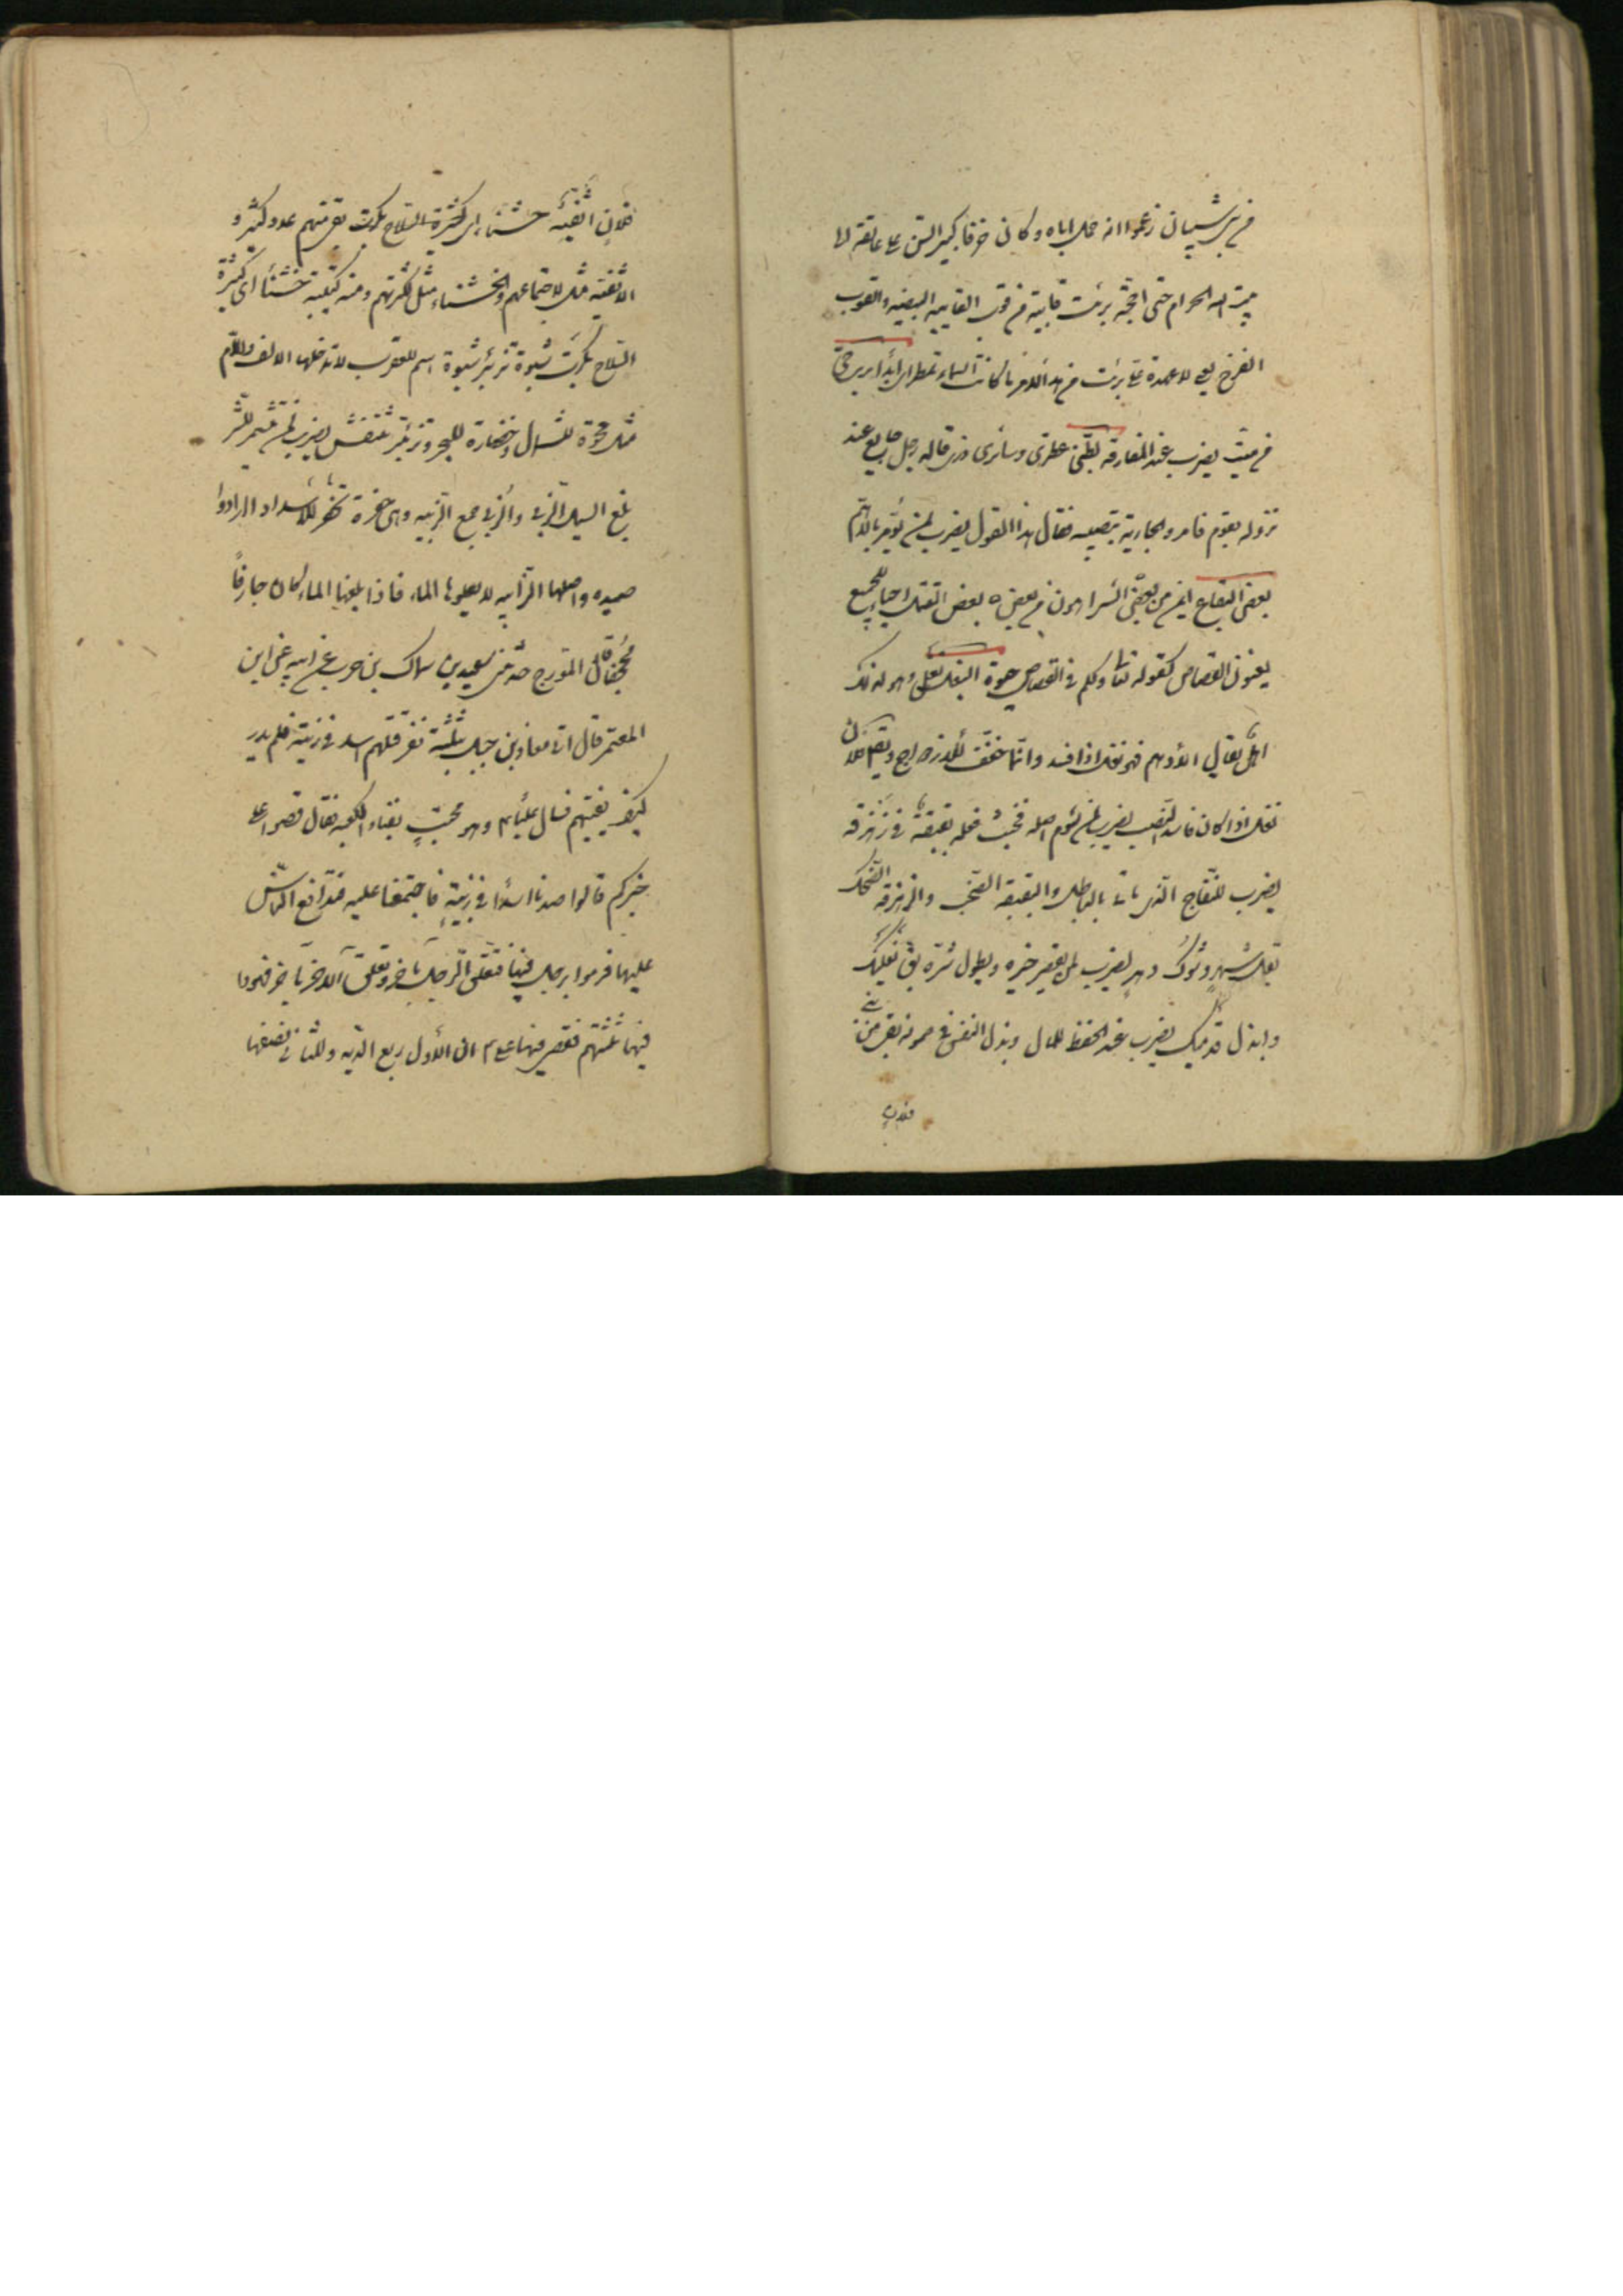 من بني شيبان زعموا انه حمل اباه وكان خرفا كبير السن على عاتقه الى
بيت الله الحرام حتى احجّه برئت قايبة من قوب القايبه البيضه والقوب
الفرخ يعني لا عهدة علىّ برئت من هذا الامر ما كانت السماء تمطر اى ابدا
في ميت يضرب عند المفارقه بطنى عطرى وسائرى ذرى قاله رجل جايع عند
نزوله بقوم فامروا الجارية بتطييبه فقال هذا القول يضرب لمن يؤمر بالاهم
بعض البقاع ايمن من بعض الشر اهون من بعض ه بعض القتل احياء للجميع
يعنون القصاص كقوله تعالى ولكم في القصاص حيوة البغل نغل وهو لذلك
اهل يقال الاديم فهو نغل اذا فسد وانما خفف للازدواج ويقال فلان
نغل اذا كان فاسد النسب يضرب لمن لؤم اصله فخبث فعله بقبقة في زهزقه
يضرب للنفاج الذى ياتى بالباطل والبقبقة الصخب والزهزقه الضحك
بقل شهر وشوك دهر يضرب لمن يقصر خيره ويطول شره بق نعليك
وابذل قدميك يضرب عند الحفظ للمال وبذل النفس في صونه بقى من بنى
فلان
فلان اثفية خشناء اى كثيرة السلاح بكرت بقى منهم عدد كثير و
الاثفية مثل لاجتماعهم والخشناء مثل لكثرتهم ومنه كتيبة خشناء اى كثيرة
السلاح بكرت شبوة تزبئر شبوة اسم للعقرب لا تدخلها الالف واللام
مثل محوة للشمال وخضارة للبحر وتزبئر تنتفش يضرب لمن يتشمر للشر
بلغ السيل الزبى والزبى جمع الزبيه وهى حفرة تحفر للاسد اذا ارادوا
صيده واصلها الرابيه لا يعلوها الماء فاذا بلغها الماء كان جارفاً
مجحفا قال المورج حدثنى سعيد بن سماك بن حرب عن ابيه عن ابن
المعتمر قال اتى معاذ بن جبل بثلثة نفر قتلهم اسد في زبية فلم يدر
كيف يفتيهم فسال عليا ع م وهو محتبٍ بفناء الكعبه فقال قصوا على
خبركم قالوا صدنا اسدا في زبيةٍ فاجتمعنا عليه فتدافع الناس
عليها فرموا برجل فيها فتعلق الرجل بآخر وتعلق الآخر بآخر فهووا
فيها ثلثتهم فقضى فيها ع م ان للاول ربع الديه وللثانى نصفها